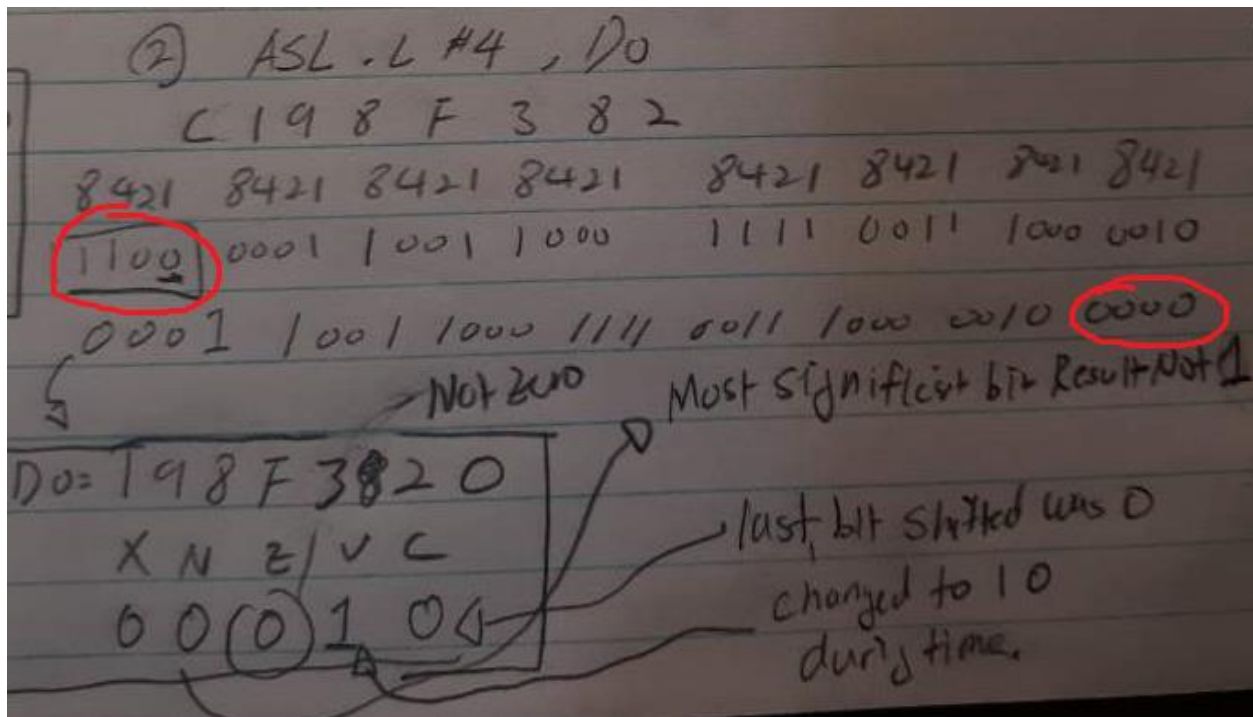 ② ASL.L #4, D0
C 1 9 8 F 3 8 2
8421 8421 8421 8421 8421 8421 8421 8421
1100 0001 1001 1000 1111 0011 1000 0010
0001 1001 1000 1111 0011 1000 0010 0000
Not zero
Most significist bit Result Not 1
D0= 1 9 8 F 3 8 2 0
X N Z V C
0 0 0 1 0
last bit shifted was 0
changed to 1 0
during time.